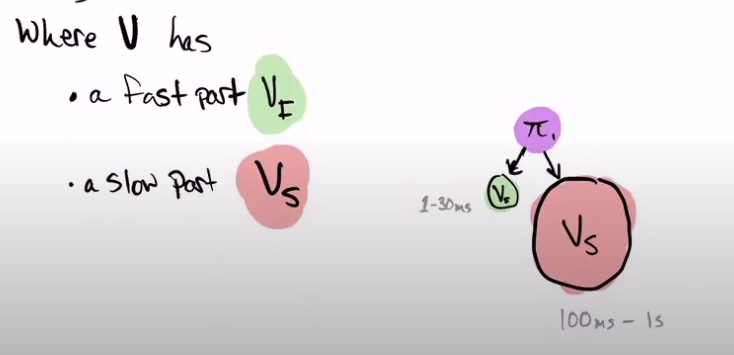 Where V has
• a fast part V_F
• a slow part V_S
π₁
V_F
1-30ms
V_S
100ms - 1s